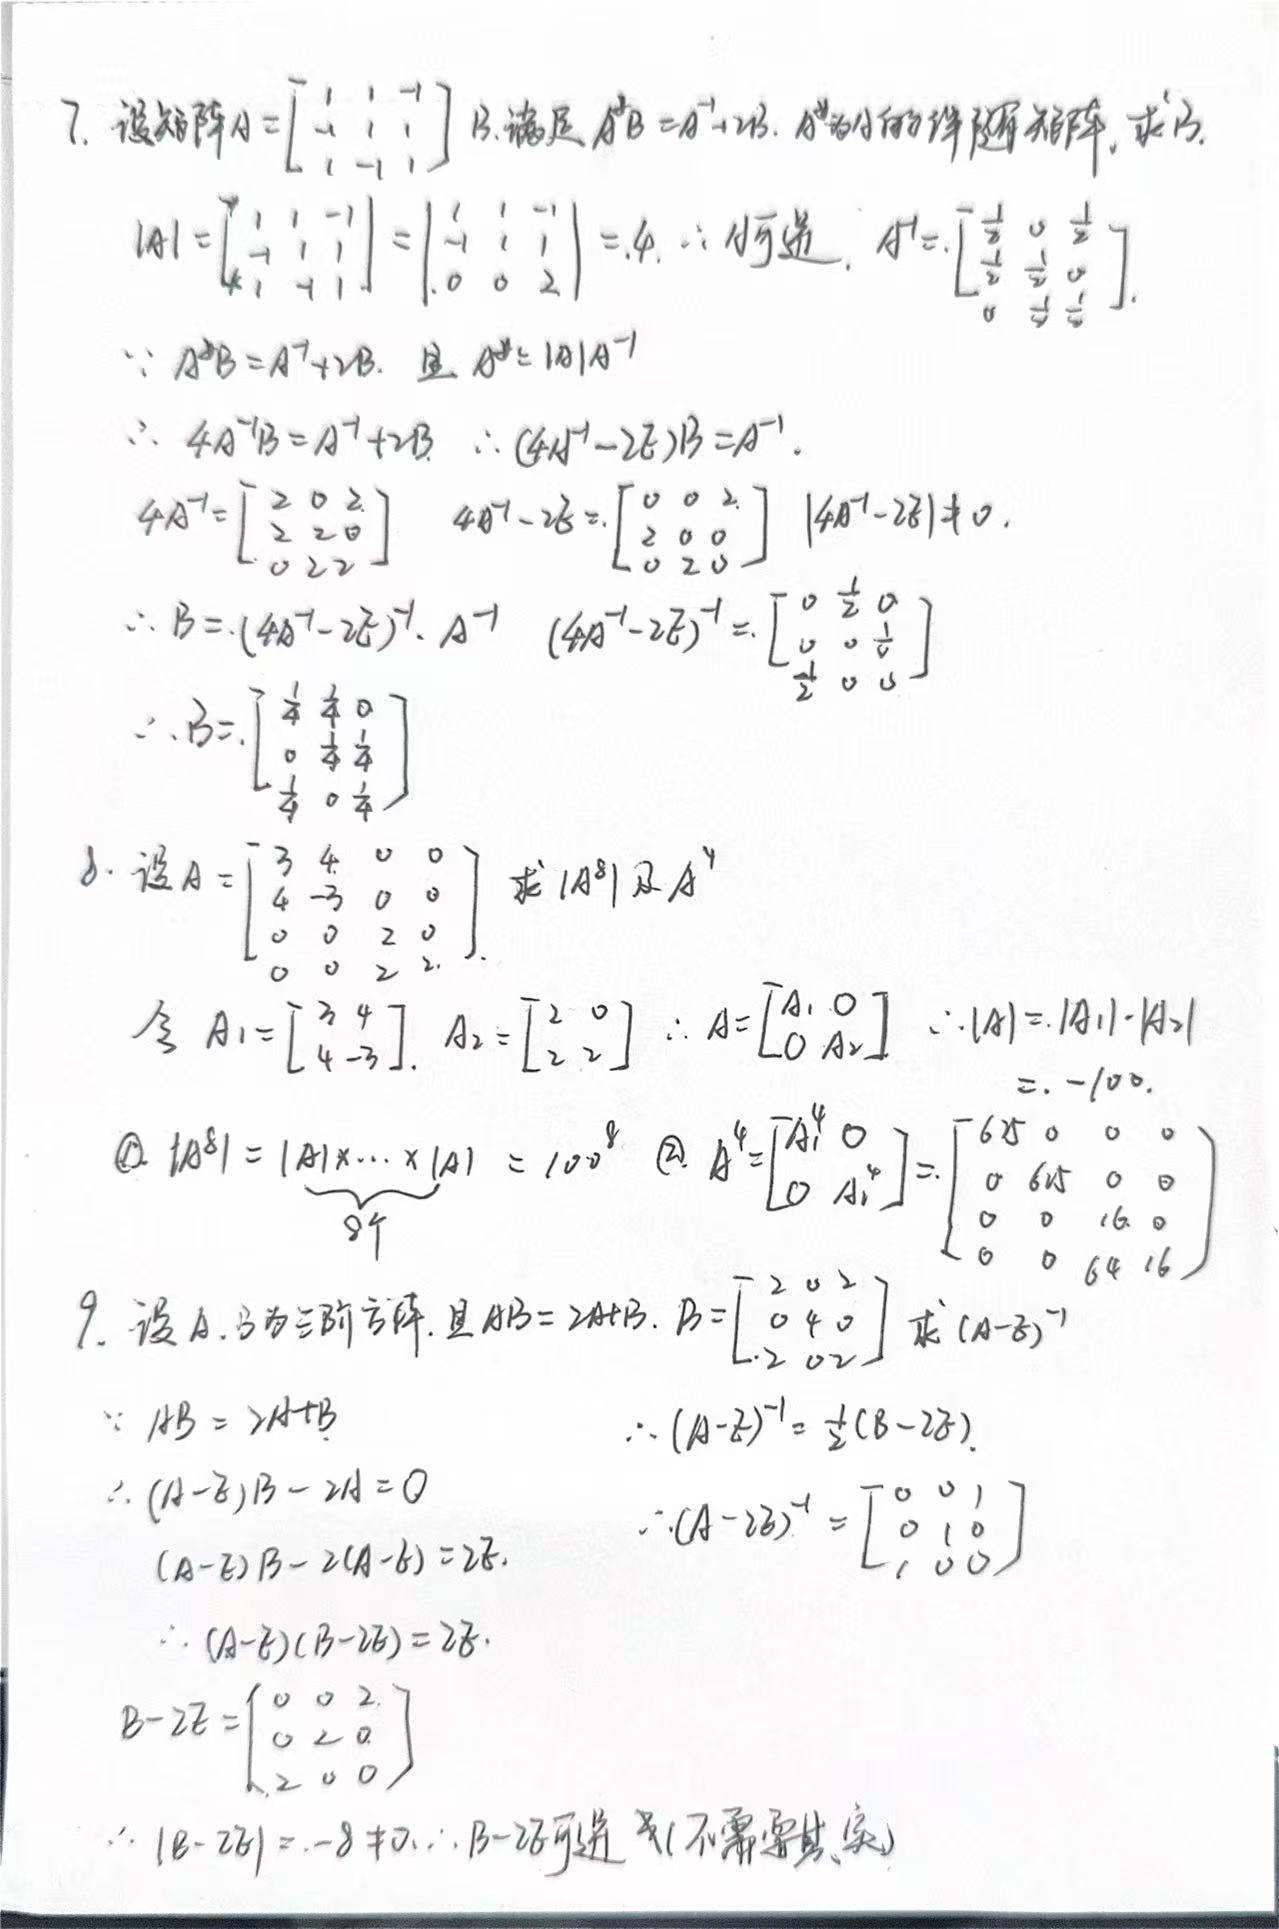 7. 设矩阵A=[1 1 -1; -1 1 1; 1 -1 1] B.满足 A*B=A⁻¹+2B. A*为A的伴随矩阵, 求B.
|A|=[1 1 -1; -1 1 1; 1 -1 1]=|1 1 -1; -1 1 1; 0 0 2|=4. ∴A可逆. A⁻¹=[1/2 0 1/2; 1/2 1/2 0; 0 1/2 1/2].
∵ A*B=A⁻¹+2B. 且 A*=|A|A⁻¹
∴ 4A⁻¹B=A⁻¹+2B. ∴(4A⁻¹-2E)B=A⁻¹.
4A⁻¹=[2 0 2; 2 2 0; 0 2 2] 4A⁻¹-2E=[0 0 2; 2 0 0; 0 2 0] |4A⁻¹-2E|≠0.
∴ B=(4A⁻¹-2E)⁻¹·A⁻¹ (4A⁻¹-2E)⁻¹=[0 1/2 0; 0 0 1/2; 1/2 0 0]
∴B=[1/4 1/4 0; 0 1/4 1/4; 1/4 0 1/4]
8. 设A=[3 4 0 0; 4 -3 0 0; 0 0 2 0; 0 0 2 2]. 求|A⁸|及A⁴
令 A₁=[3 4; 4 -3]. A₂=[2 0; 2 2] ∴A=[A₁ 0; 0 A₂] ∴|A|=|A₁|·|A₂|
=-100.
①. |A⁸|=|A|×…×|A| = 100⁸ ②. A⁴=[A₁⁴ 0; 0 A₁⁴]=[625 0 0 0; 0 625 0 0; 0 0 16 0; 0 0 64 16]
8个
9. 设A.B为三阶方阵.且AB=2A+B. B=[2 0 2; 0 4 0; 2 0 2] 求(A-E)⁻¹
∵ AB=2A+B.
∴(A-E)B-2A=0
(A-E)B-2(A-E)=2E.
∴ (A-E)(B-2E)=2E.
B-2E=[0 0 2; 0 2 0; 2 0 0]
∴|B-2E|=-8≠0.∴B-2E可逆 (不需要其实)
∴(A-E)⁻¹=1/2(B-2E).
∴(A-2E)⁻¹=[0 0 1; 0 1 0; 1 0 0]